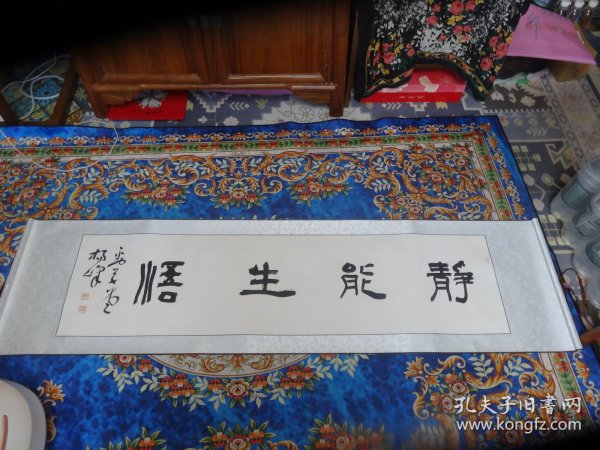 靜能生悟
孔夫子旧書网
www.kongfz.com